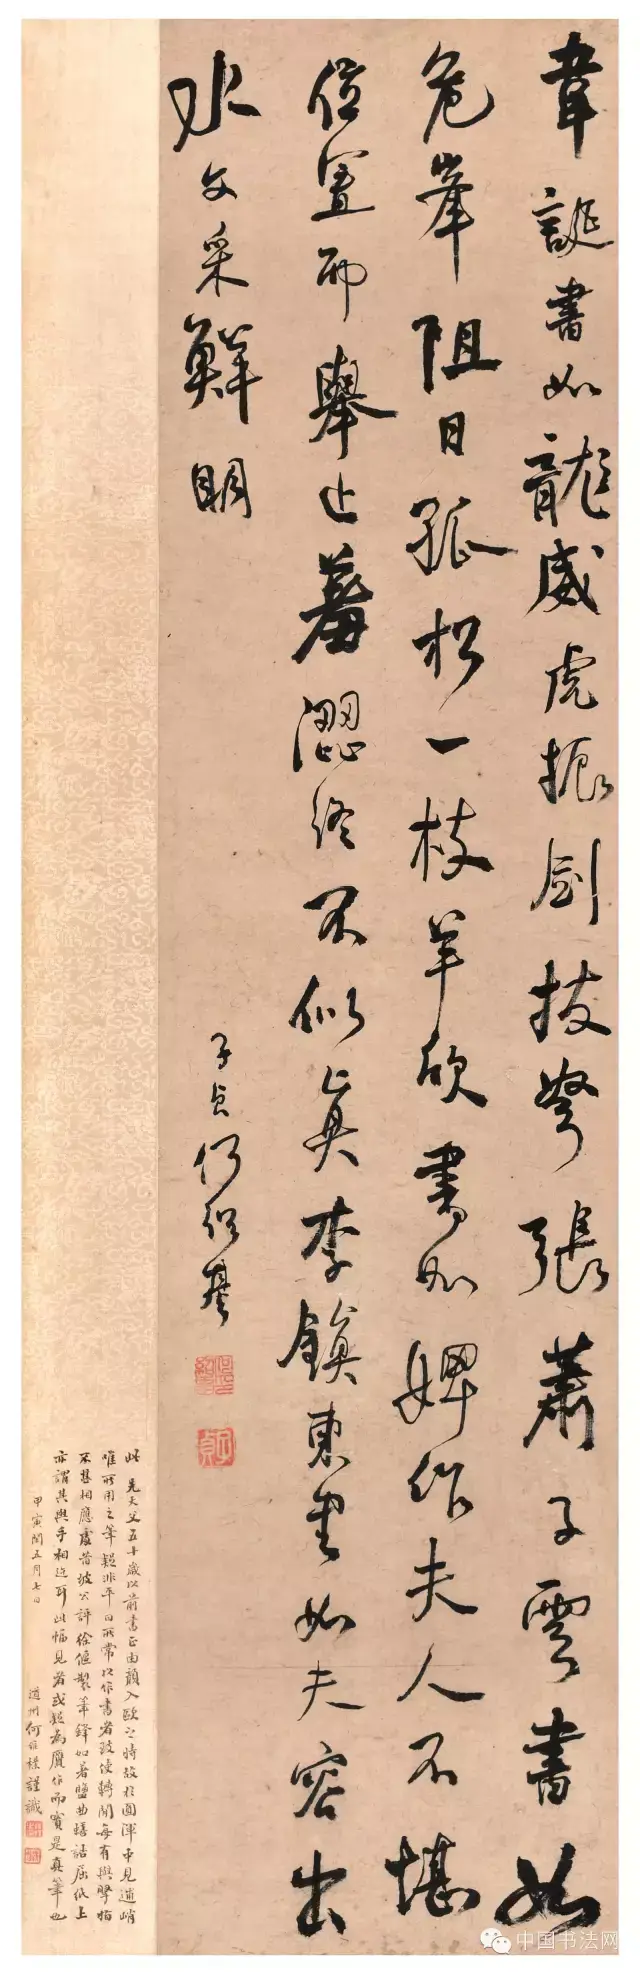 韋誕書如龍威虎振劍拔弩張蕭子雲書如
危峯阻日孤松一枝羊欣書如婢作夫人不堪
位置而舉止羞澀終不似真李鎮東書如夫容出
水文采鮮明
子貞何紹基
子貞
此先大父五十歲以前書正由顏入歐之時故於圓渾中見遒峭
惟所用之筆疑非平日所常以作書者故使轉間每有與腕指
不甚相應處昔坡公評徐偃製筆鋒如著鹽曲蟮詰屈紙上
亦謂其與手相迕耳此幅見者或疑為贗作而實是真筆也
甲寅閏五月七日
道州何維樸謹識
中国书法网